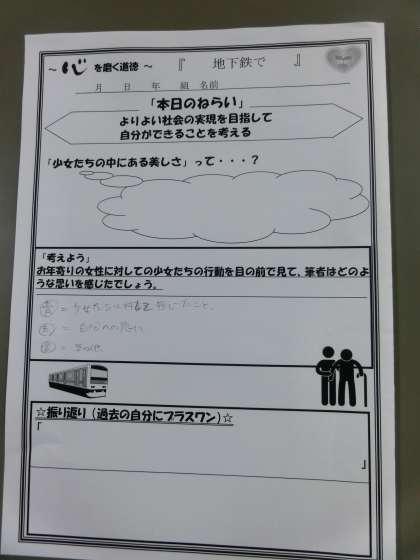 ~ 心 を磨く道徳 ~ 『 地下鉄で 』
月 日 年 組 名前
「本日のねらい」
よりよい社会の実現を目指して
自分ができることを考える
「少女たちの中にある美しさ」って・・・?
「考えよう」
お年寄りの女性に対しての少女たちの行動を目の前で見て、筆者はどのよ
うな思いを感じたでしょう。
☆振り返り(過去の自分にプラスワン)☆
「
」